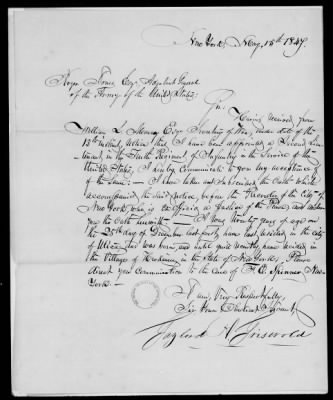 New York, May 15th 1847.
Roger Jones Esq Adjutant General
of the Army of the United States:
Sir: Having received from
William L. Marcy Esq Secretary of War, under date of the
13th instant, notice that I have been appointed a Second Lieu-
tenant, in the Tenth Regiment of Infantry in the Service of the
United States, I hereby communicate to you my acceptance
of the same: — I have taken and subscribed the Oath which
accompanied the said notice, before the Recorder of the City of
New York, who is ex officio a Justice of the Peace, and
you the Oath herewith — I was twenty years of age on
the 25th day of December last past, have last resided in the city
of Utica and was born, and until quite recently, have resided in
the Village of Herkimer, in the State of New York, Please
direct your communication to the Care of F. E. Spinner, New-
York. —
I am, Very Respectfully,
Sir Your Obedient Servant
Gaylord H. Griswold